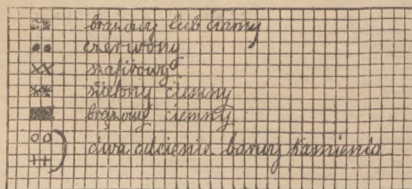 brązowy lub czarny
czerwony
szafirowy
zielony ciemny
brązowy ciemny
dwa odcienie barwy kamienia